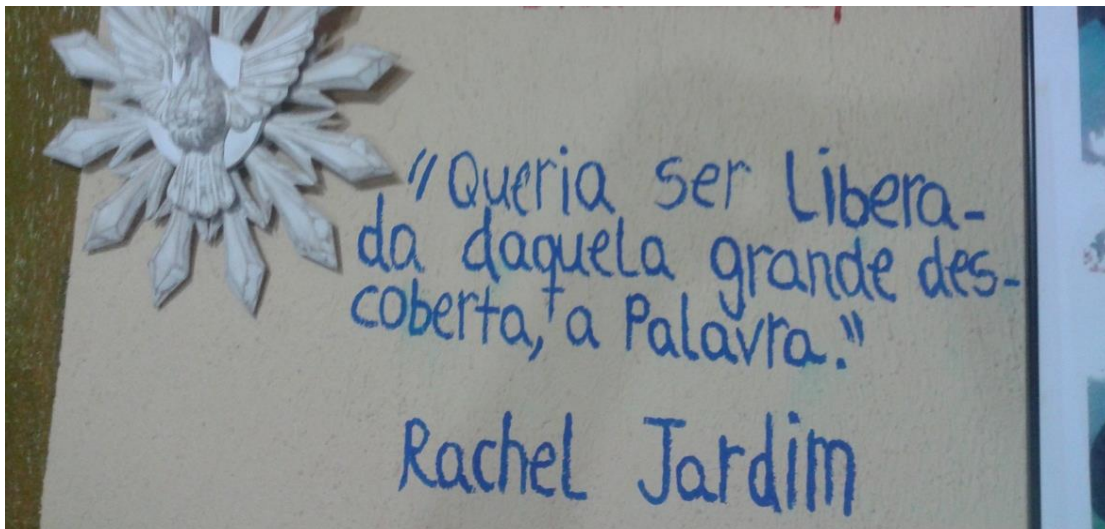 "Queria ser Libera-
da daquela grande des-
coberta, a Palavra."
Rachel Jardim